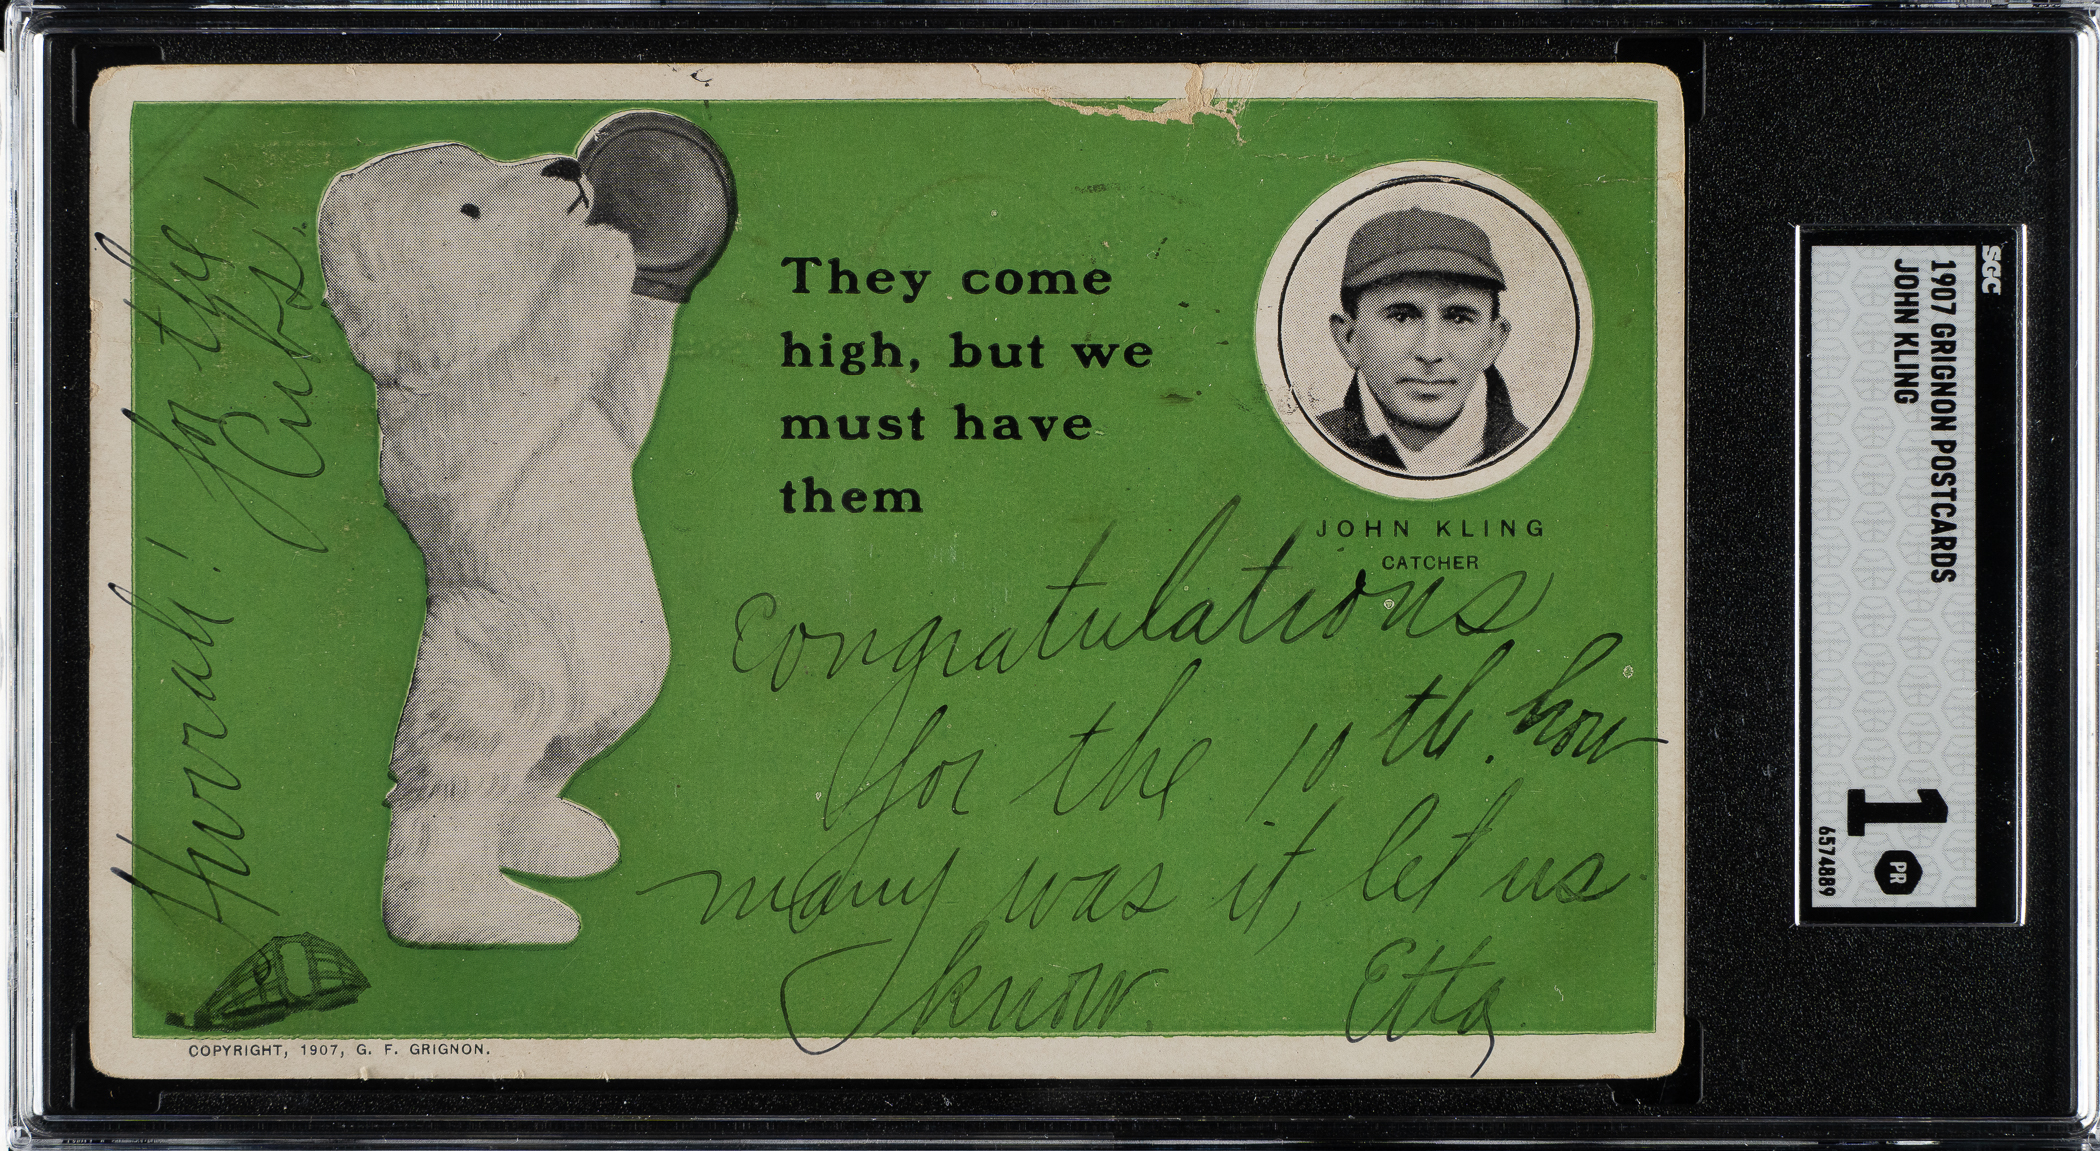 Hurrah! for the
Cubs!
They come
high, but we
must have
them
JOHN KLING
CATCHER
Congratulations
for the 10th. how
many was it, let us
know. Etta.
COPYRIGHT, 1907, G. F. GRIGNON.
SGC
1907 GRIGNON POSTCARDS
JOHN KLING
1
PR
6574889